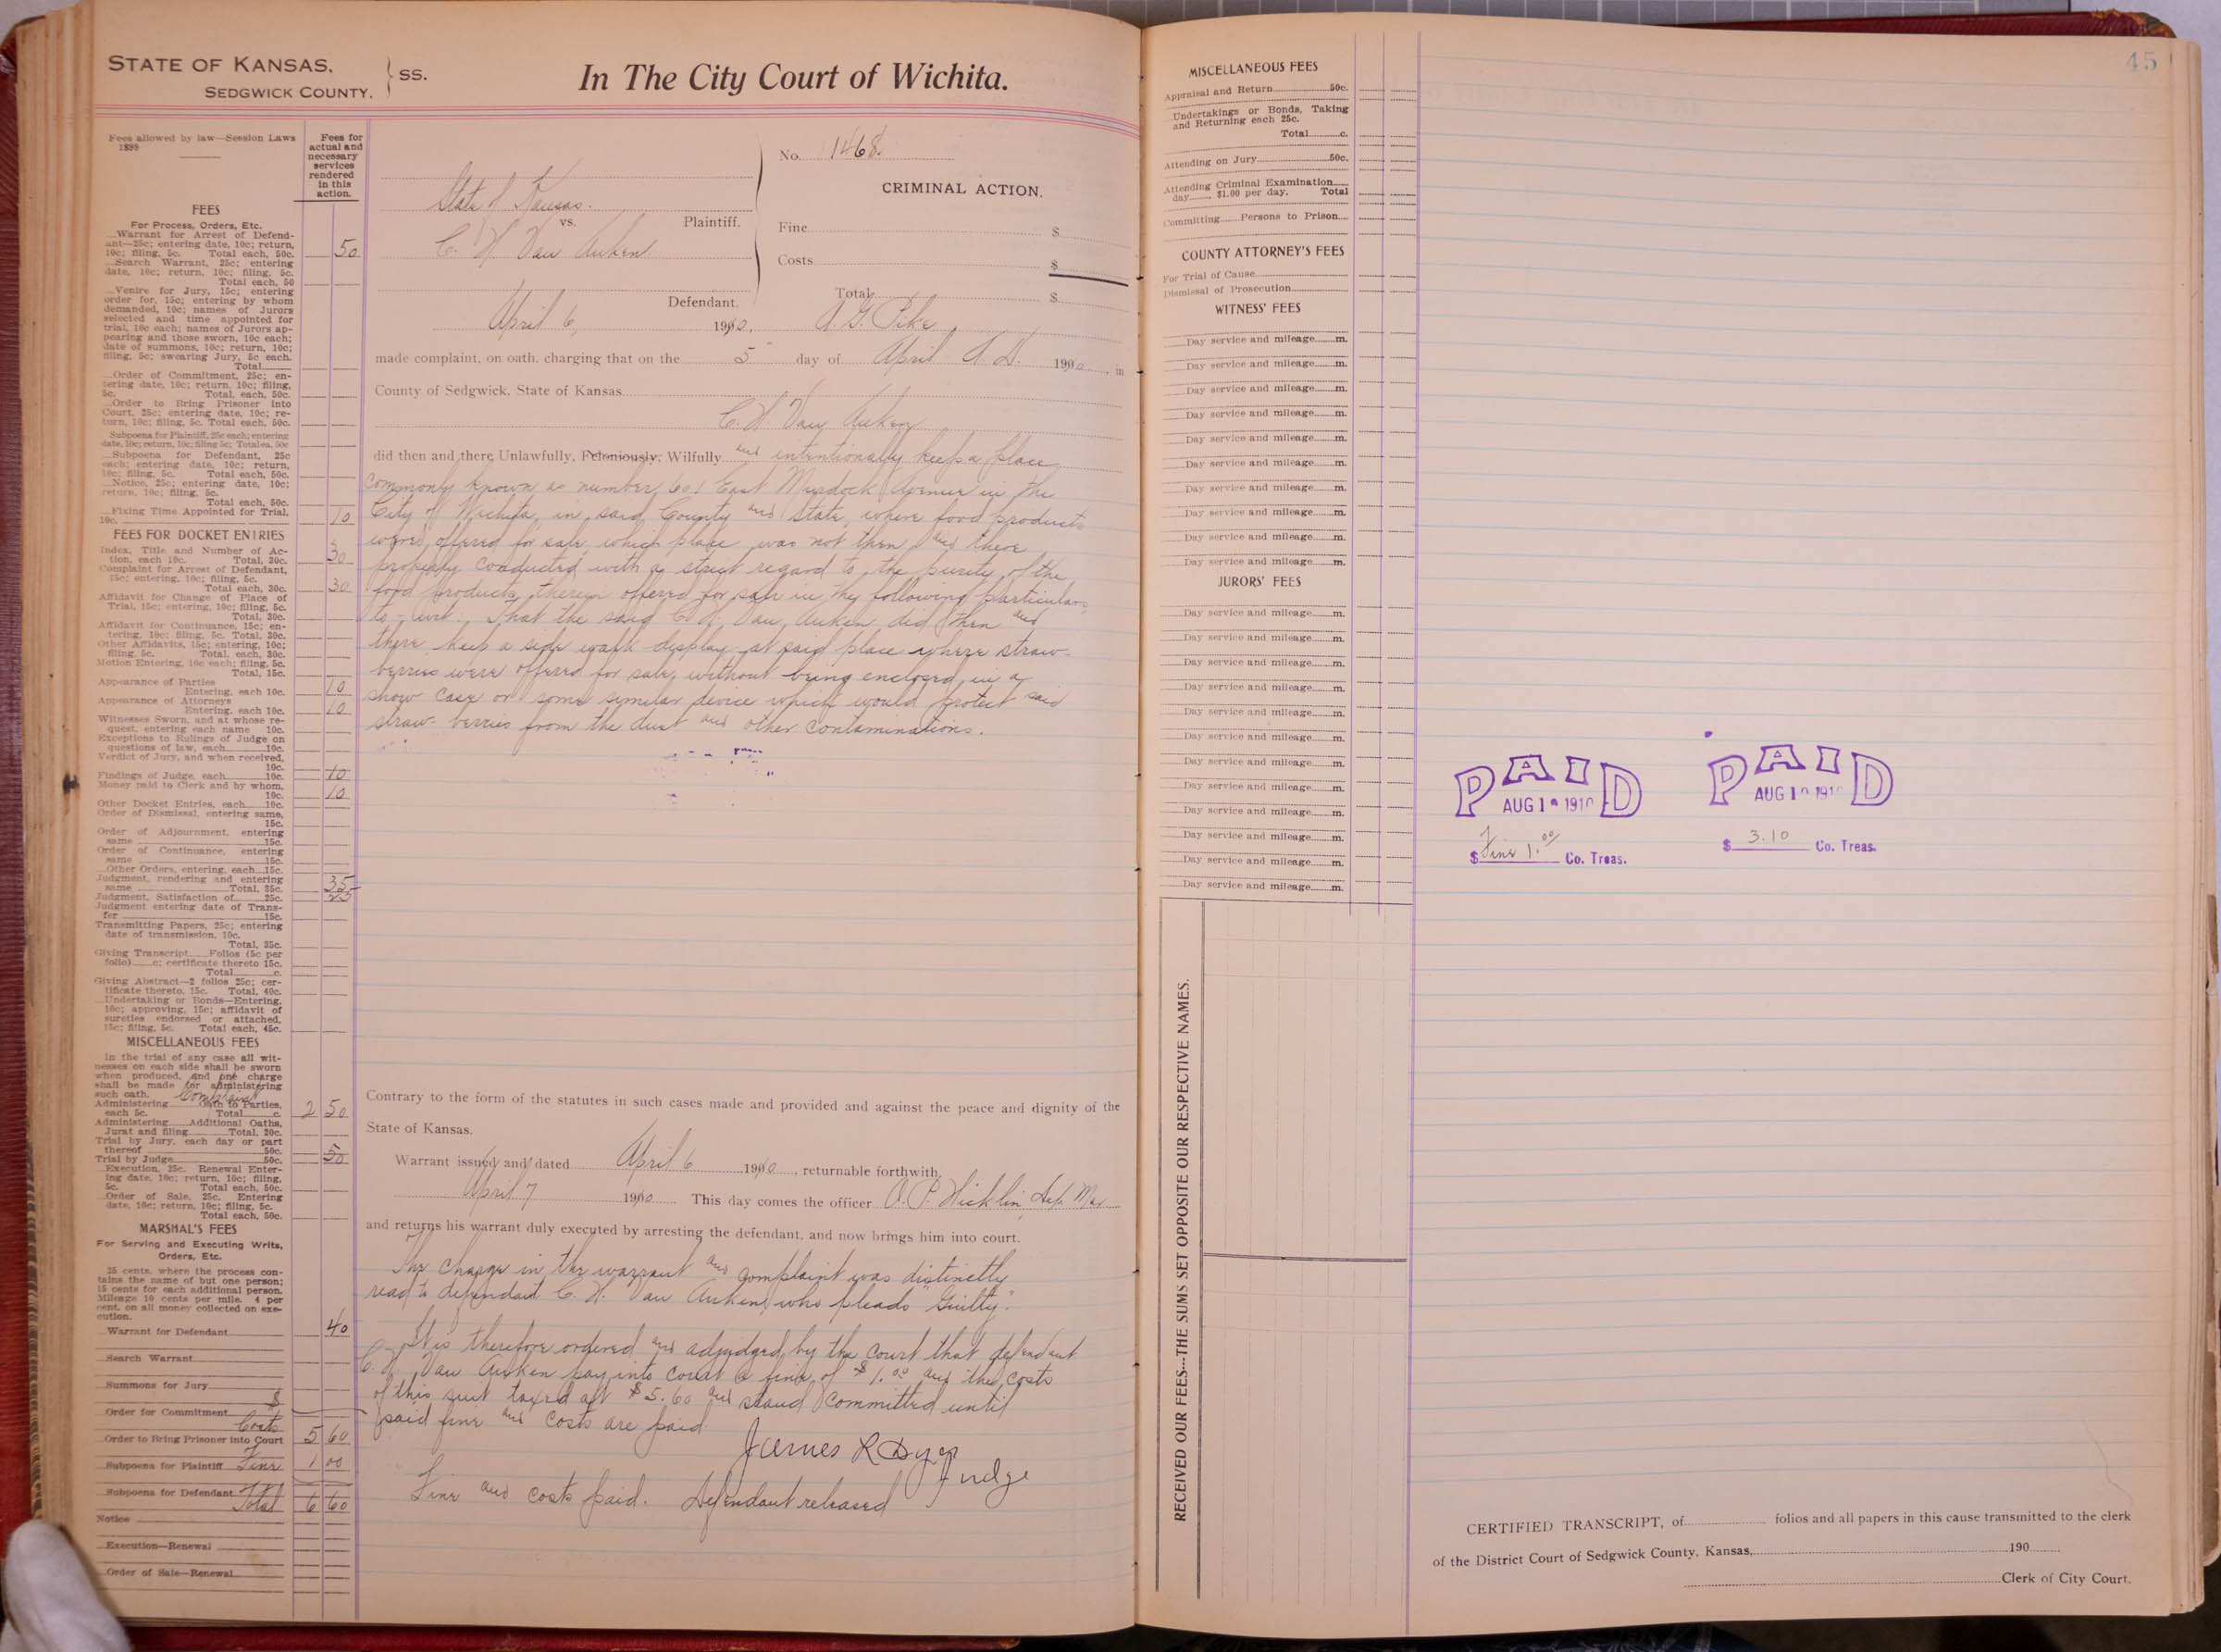 STATE OF KANSAS,
SEDGWICK COUNTY.
SS.
In The City Court of Wichita.
Fees allowed by law—Session Laws
1899
Fees for
actual and
necessary
services
rendered
in this
action.
FEES
For Process, Orders, Etc.
Warrant for Arrest of Defend-
ant—25c; entering date, 10c; return,
10c; filing, 5c. Total each, 50c. 50
Search Warrant, 25c; entering
date, 10c; return, 10c; filing, 5c.
Total each, 50
Venire for Jury, 15c; entering
order for, 15c; entering by whom
demanded, 10c; names of Jurors
selected and time appointed for
trial, 10c each; names of Jurors ap-
pearing and those sworn, 10c each;
date of summons, 10c; return, 10c;
filing, 5c; swearing Jury, 5c each.
Total
Order of Commitment, 25c; en-
tering date, 10c; return, 10c; filing,
5c. Total, each, 50c.
Order to Bring Prisoner into
Court, 25c; entering date, 10c; re-
turn, 10c; filing, 5c. Total each, 50c.
Subpoena for Plaintiff, 25c each; entering
date, 10c; return, 10c; filing 5c; Total ea. 50c
Subpoena for Defendant, 25c
each; entering date, 10c; return,
10c; filing, 5c. Total, each, 50c.
Notice, 25c; entering date, 10c;
return, 10c; filing, 5c.
Total each, 50c.
Fixing Time Appointed for Trial,
10c. 10
FEES FOR DOCKET ENTRIES
Index, Title and Number of Ac-
tion, each 10c. Total, 30c. 30
Complaint for Arrest of Defendant,
15c; entering, 10c; filing, 5c.
Total each, 30c. 30
Affidavit for Change of Place of
Trial, 15c; entering, 10c; filing, 5c.
Total, 30c.
Affidavit for Continuance, 15c; en-
tering, 10c; filing, 5c. Total, 30c.
Other Affidavits, 15c; entering, 10c;
filing, 5c. Total, each, 30c.
Motion Entering, 10c each; filing, 5c.
Total, 15c.
Appearance of Parties
Entering, each 10c. 10
Appearance of Attorneys
Entering, each 10c. 10
Witnesses Sworn, and at whose re-
quest, entering each name 10c.
Exceptions to Rulings of Judge on
questions of law, each 10c.
Verdict of Jury, and when received,
10c.
Findings of Judge, each 10c. 10
Money paid to Clerk and by whom,
10c. 10
Other Docket Entries, each 10c.
Order of Dismissal, entering same,
15c.
Order of Adjournment, entering
same 15c.
Order of Continuance, entering
same 15c.
Other Orders, entering, each 15c.
Judgment, rendering and entering
same Total, 35c. 35
Judgment, Satisfaction of 25c. 25
Judgment entering date of Trans-
fer 15c.
Transmitting Papers, 25c; entering
date of transmission, 10c.
Total, 35c.
Giving Transcript Folios (5c per
folio) c; certificate thereto 15c.
Total c.
Giving Abstract—2 folios 25c; cer-
tificate thereto, 15c. Total, 40c.
Undertaking or Bonds—Entering,
10c; approving, 15c; affidavit of
sureties endorsed or attached,
15c; filing, 5c. Total each, 45c.
MISCELLANEOUS FEES
In the trial of any case all wit-
nesses on each side shall be sworn
when produced, and one charge
shall be made for administering
such oath. Complaint
Administering Oath to Parties,
each 5c. Total c. 2 50
Administering Additional Oaths,
Jurat and filing Total, 20c.
Trial by Jury, each day or part
thereof 50c.
Trial by Judge 50c. 50
Execution, 25c. Renewal Enter-
ing date, 10c; return, 10c; filing,
5c. Total each, 50c.
Order of Sale, 25c. Entering
date, 10c; return, 10c; filing, 5c.
Total each, 50c.
MARSHAL'S FEES
For Serving and Executing Writs,
Orders, Etc.
25 cents, where the process con-
tains the name of but one person;
15 cents for each additional person.
Mileage 10 cents per mile. 4 per
cent. on all money collected on exe-
cution.
Warrant for Defendant 40
Search Warrant
Summons for Jury
$
Order for Commitment
Costs
Order to Bring Prisoner into Court 5 60
Subpoena for Plaintiff Fine 1 00
Subpoena for Defendant Total 6 60
Notice
Execution—Renewal
Order of Sale—Renewal
No. 1468.
CRIMINAL ACTION.
State of Kansas.
vs. Plaintiff,
C. H. Van Auken
Defendant.
Fine $
Costs $
Total $
April 6, 1910. A. G. Pike
made complaint, on oath, charging that on the 5" day of April A. D. 1910, in
County of Sedgwick, State of Kansas
C. H. Van Auken
did then and there Unlawfully, Feloniously, Wilfully and intentionally keep a place
commonly known as number 601 East Murdock Avenue in the
City of Wichita, in said County and State, where food products
were offered for sale, which place was not then and there
properly conducted with a strict regard to the purity of the
food products therein offered for sale in the following particulars
to-wit: That the said C. H. Van Auken did then and
there keep a side walk display at said place where straw-
berries were offered for sale, without being enclosed in a
show case or some similar device which would protect said
straw-berries from the dust and other contaminations.
Contrary to the form of the statutes in such cases made and provided and against the peace and dignity of the
State of Kansas.
Warrant issued and dated April 6 1910, returnable forthwith,
April 7 1910 This day comes the officer O. P. Hicklin, Dep. Mar.
and returns his warrant duly executed by arresting the defendant, and now brings him into court.
The charge in the warrant and complaint was distinctly
read to defendant C. H. Van Auken, who pleads "Guilty".
It is therefore ordered and adjudged by the court that defendant
C. H. Van Auken pay into court a fine of $1.00 and the costs
of this suit taxed at $5.60 and stand committed until
said fine and costs are paid
James L Dyer
Judge
Fine and costs paid. Defendant released
45
MISCELLANEOUS FEES
Appraisal and Return 50c.
Undertakings or Bonds, Taking
and Returning each 25c.
Total c.
Attending on Jury 50c.
Attending Criminal Examination
day $1.00 per day. Total
Committing Persons to Prison
COUNTY ATTORNEY'S FEES
For Trial of Cause
Dismissal of Prosecution
WITNESS' FEES
Day service and mileage m.
Day service and mileage m.
Day service and mileage m.
Day service and mileage m.
Day service and mileage m.
Day service and mileage m.
Day service and mileage m.
Day service and mileage m.
Day service and mileage m.
Day service and mileage m.
JURORS' FEES
Day service and mileage m.
Day service and mileage m.
Day service and mileage m.
Day service and mileage m.
Day service and mileage m.
Day service and mileage m.
Day service and mileage m.
Day service and mileage m.
Day service and mileage m.
Day service and mileage m.
Day service and mileage m.
Day service and mileage m.
RECEIVED OUR FEES---THE SUMS SET OPPOSITE OUR RESPECTIVE NAMES.
PAID
AUG 1 1910
$ Fine 1.00 Co. Treas.
PAID
AUG 1 191
$ 3.10 Co. Treas.
CERTIFIED TRANSCRIPT, of folios and all papers in this cause transmitted to the clerk
of the District Court of Sedgwick County, Kansas, 190
Clerk of City Court.